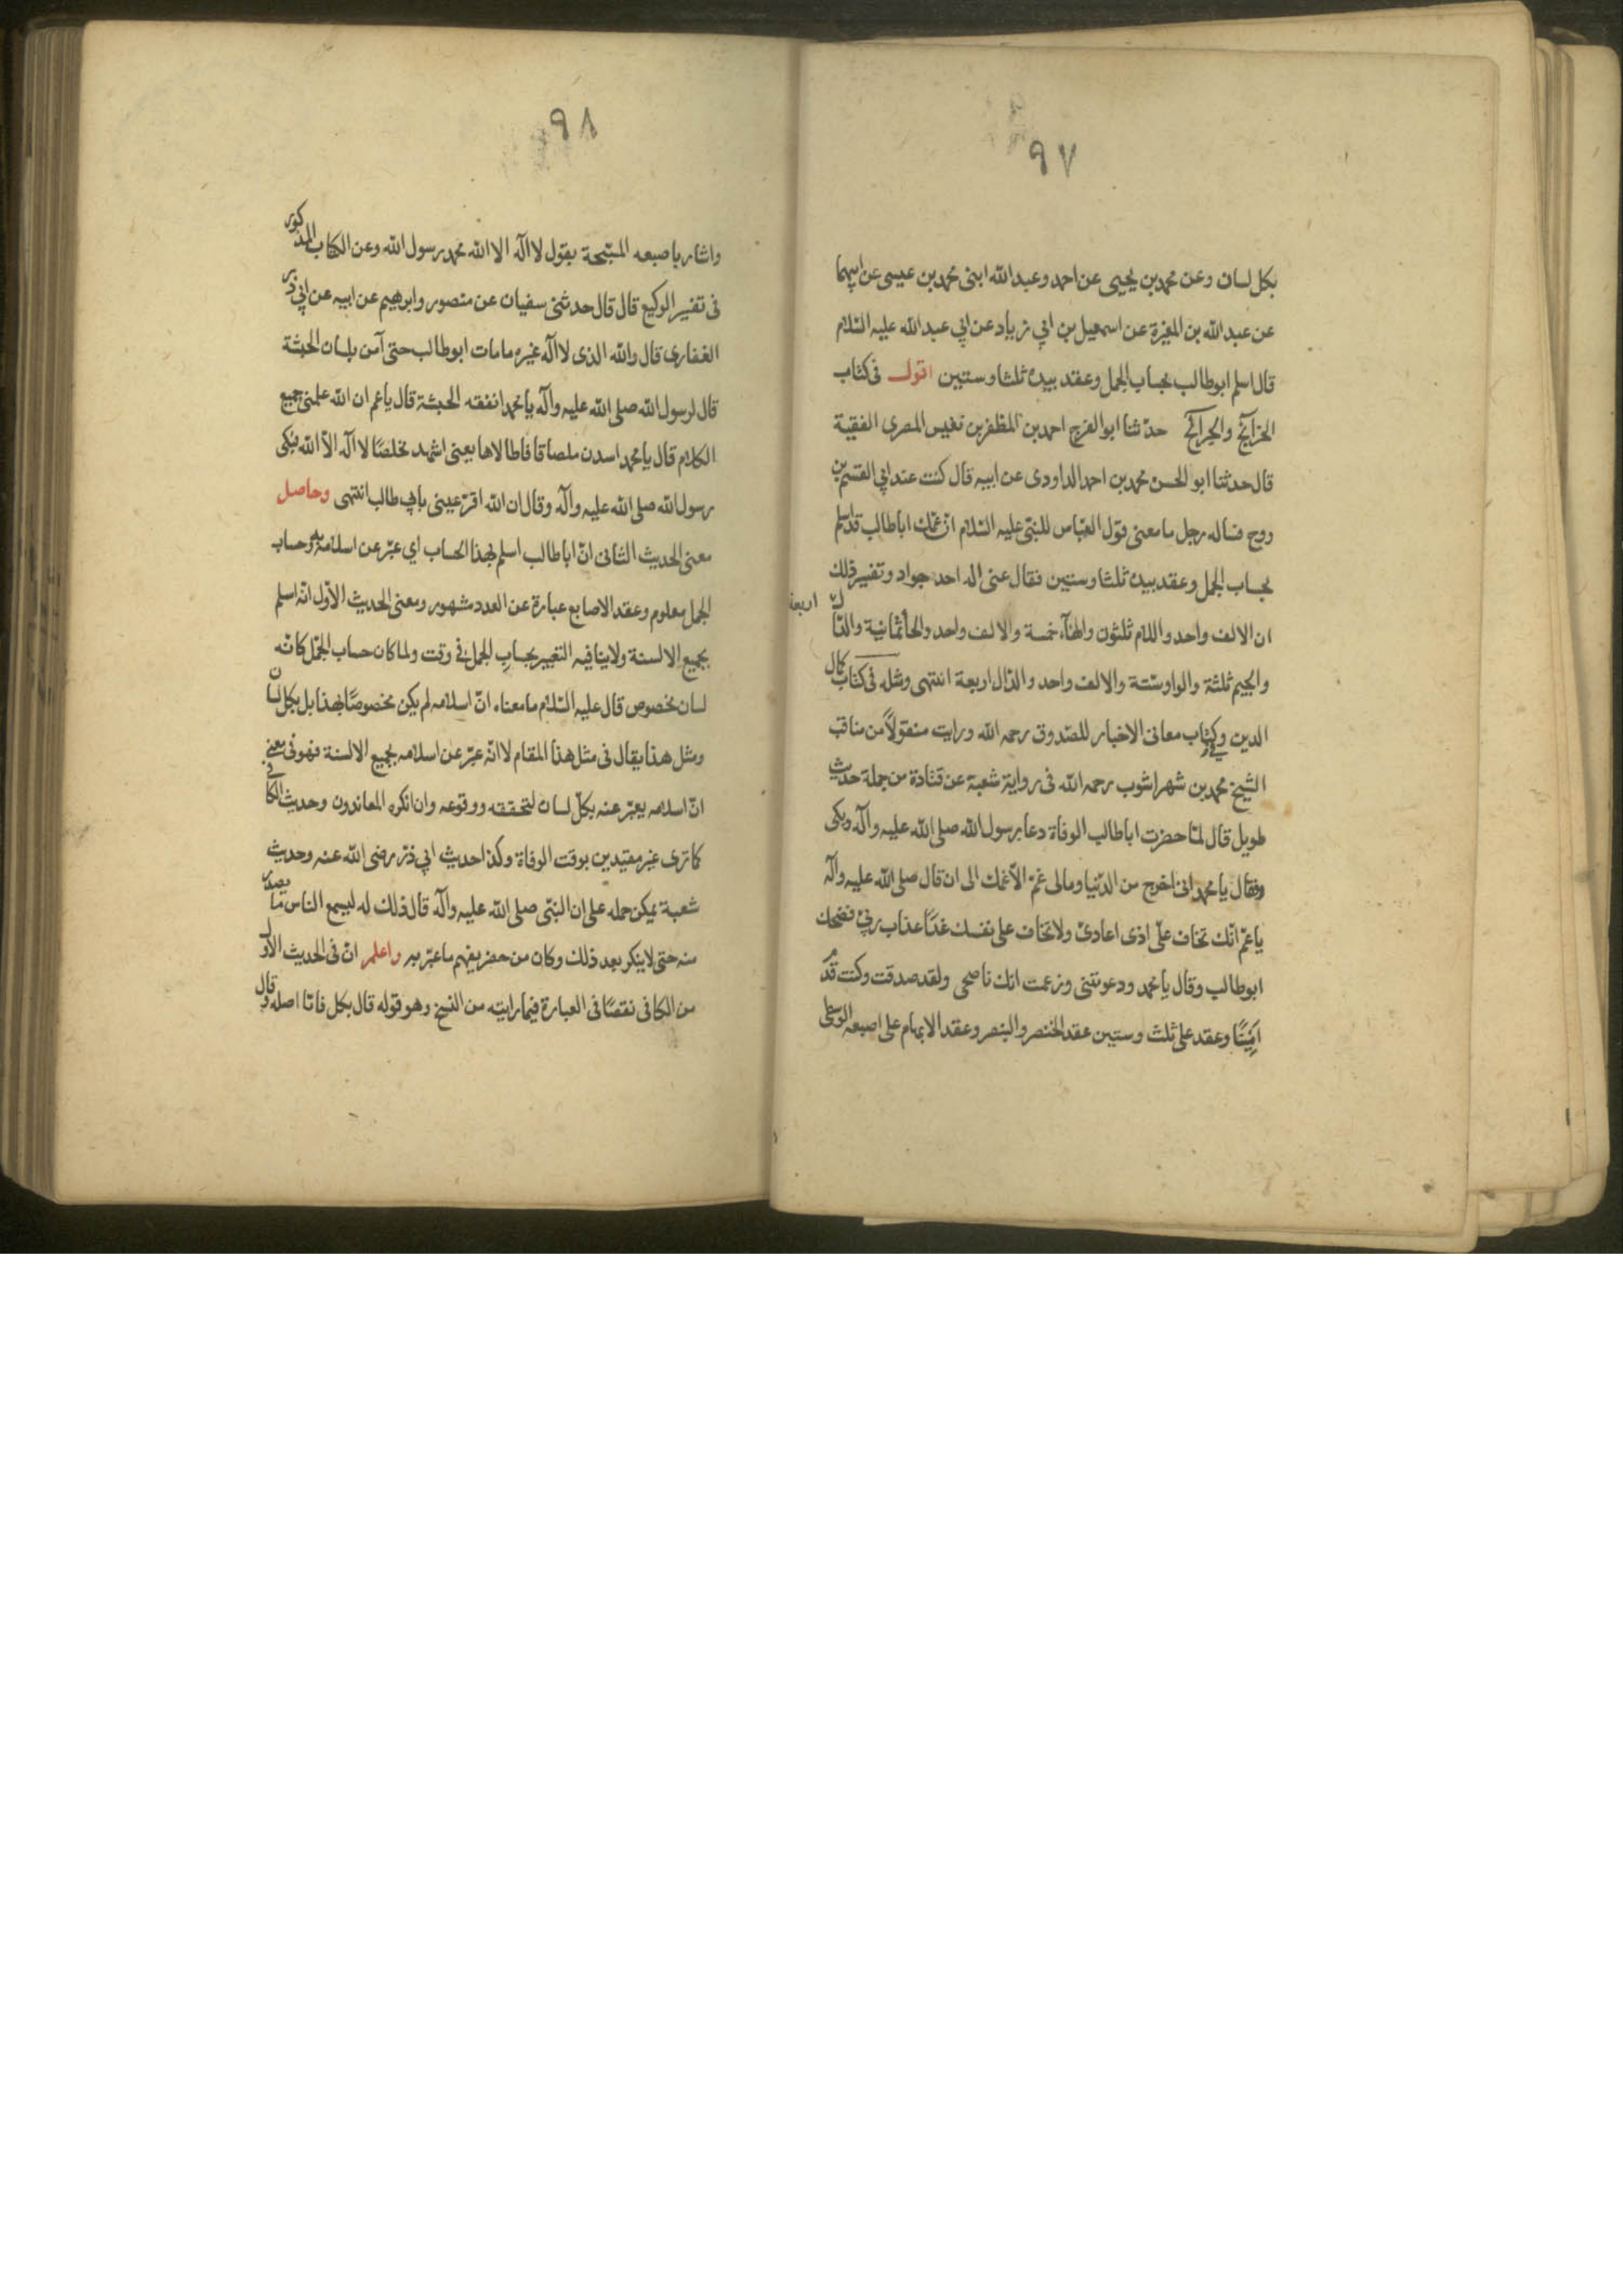 ٩٧
بكل لسان وعن محمد بن يحيى عن احمد وعبد الله ابنى محمد بن عيسى عن ابيهما
عن عبد الله بن المغيرة عن اسمعيل بن ابي زياد عن ابي عبد الله عليه السّلام
قال اسلم ابوطالب بحساب الجمل وعقد بيده ثلثا وستين اقول فى كتاب
الخرايج والجرايح حدثنا ابو الفرج احمد بن المظفر بن نفيس المصرى الفقيه
قال حدثنا ابو الحسن محمد بن احمد الداودى عن ابيه قال كنت عند ابي القسم بن
روح فساله رجل ما معنى قول العبّاس للنبّى عليه السّلام انّ عمّك اباطالب قد اسلم
بحساب الجمل وعقد بيده ثلثا وستين فقال عنى اله احد جواد وتفسير ذلك
ان الالف واحد واللام ثلثون والهآء خمسة والالف واحد والحا ثمانية والدّال اربعة
والجيم ثلثة والواو ستّة والالف واحد والدّال اربعة انتهى ومثله فى كتاب كمال
الدين وكتاب معانى الاخبار للصّدوق رحمه الله ورايت منقولاً من مناقب
الشيخ محمد بن شهراشوب رحمه الله فى رواية شعبة عن قتادة من جملة حديث
طويل قال لمّا حضرت اباطالب الوفاة دعا رسول الله صلى الله عليه وآله وبكى
وقال يا محمد انى اخرج من الدّنيا ومالى غمّ الّا غمّك الى ان قال صلى الله عليه وآله
ياعمّ انّك تخاف علىّ اذى اعادىّ ولا تخاف على نفسك غدًا عذاب ربّى فضحك
ابوطالب وقال يا محمد ودعوتنى وزعمت انك ناصحى ولقد صدقت وكنت قدم
امينًا وعقد على ثلث وستين عقد الخنصر والبنصر وعقد الابهام على اصبعه الوسطى
٩٨
واشار باصبعه المسبّحة يقول لا اله الا الله محمد رسول الله وعن الكتاب المذكور
فى تفسير الوكيع قال قال حدثنى سفيان عن منصور وابرهيم عن ابيه عن ابي ذر
الغفارى قال والله الذى لا اله غيره مامات ابوطالب حتى آمن بلسان الحبشة
قال لرسول الله صلى الله عليه وآله يا محمد اتفقه الحبشة قال ياعم ان الله علمنى جميع
الكلام قال يا محمد اسدن ملصاقا فاطالاها يعنى اشهد مخلصًا لا اله الّا الله فبكى
رسول الله صلى الله عليه وآله وقال ان الله اقرّ عينى بابي طالب انتهى وحاصل
معنى الحديث الثانى انّ اباطالب اسلم بهذا الحساب اي عبّر عن اسلامه به وحساب
الجمل معلوم وعقد الاصابع عبارة عن العدد مشهور ومعنى الحديث الاوّل انّه اسلم
بجميع الالسنة ولا ينافيه التعبير بحساب الجمل فى وقت ولما كان حساب الجمّل كانّه
لسان مخصوص قال عليه السّلام ما معناه انّ اسلامه لم يكن مخصوصًا بهذا بل بكل لسان
ومثل هذا يقال فى مثل هذا المقام لا انّه عبّر عن اسلامه بجميع الالسنة فهو فى معنى
انّ اسلامه يعبّر عنه بكلّ لسان لتحققه ووقوعه وان انكره المعاندون وحديث الكافى
كما ترى غير مقيّدين بوقت الوفاة وكذا حديث ابي ذرّ رضى الله عنه وحديث
شعبة يمكن حمله على ان النبّى صلى الله عليه وآله قال ذلك له ليسمع الناس ما يصدر
منه حتى لا ينكر بعد ذلك وكان من حضر يفهم ما عبّر به واعلم انّ فى الحديث الاوّل
من الكافى نقصًا فى العبارة فيما رايته من النسخ وهو قوله قال بكل فامّا اصله وقال